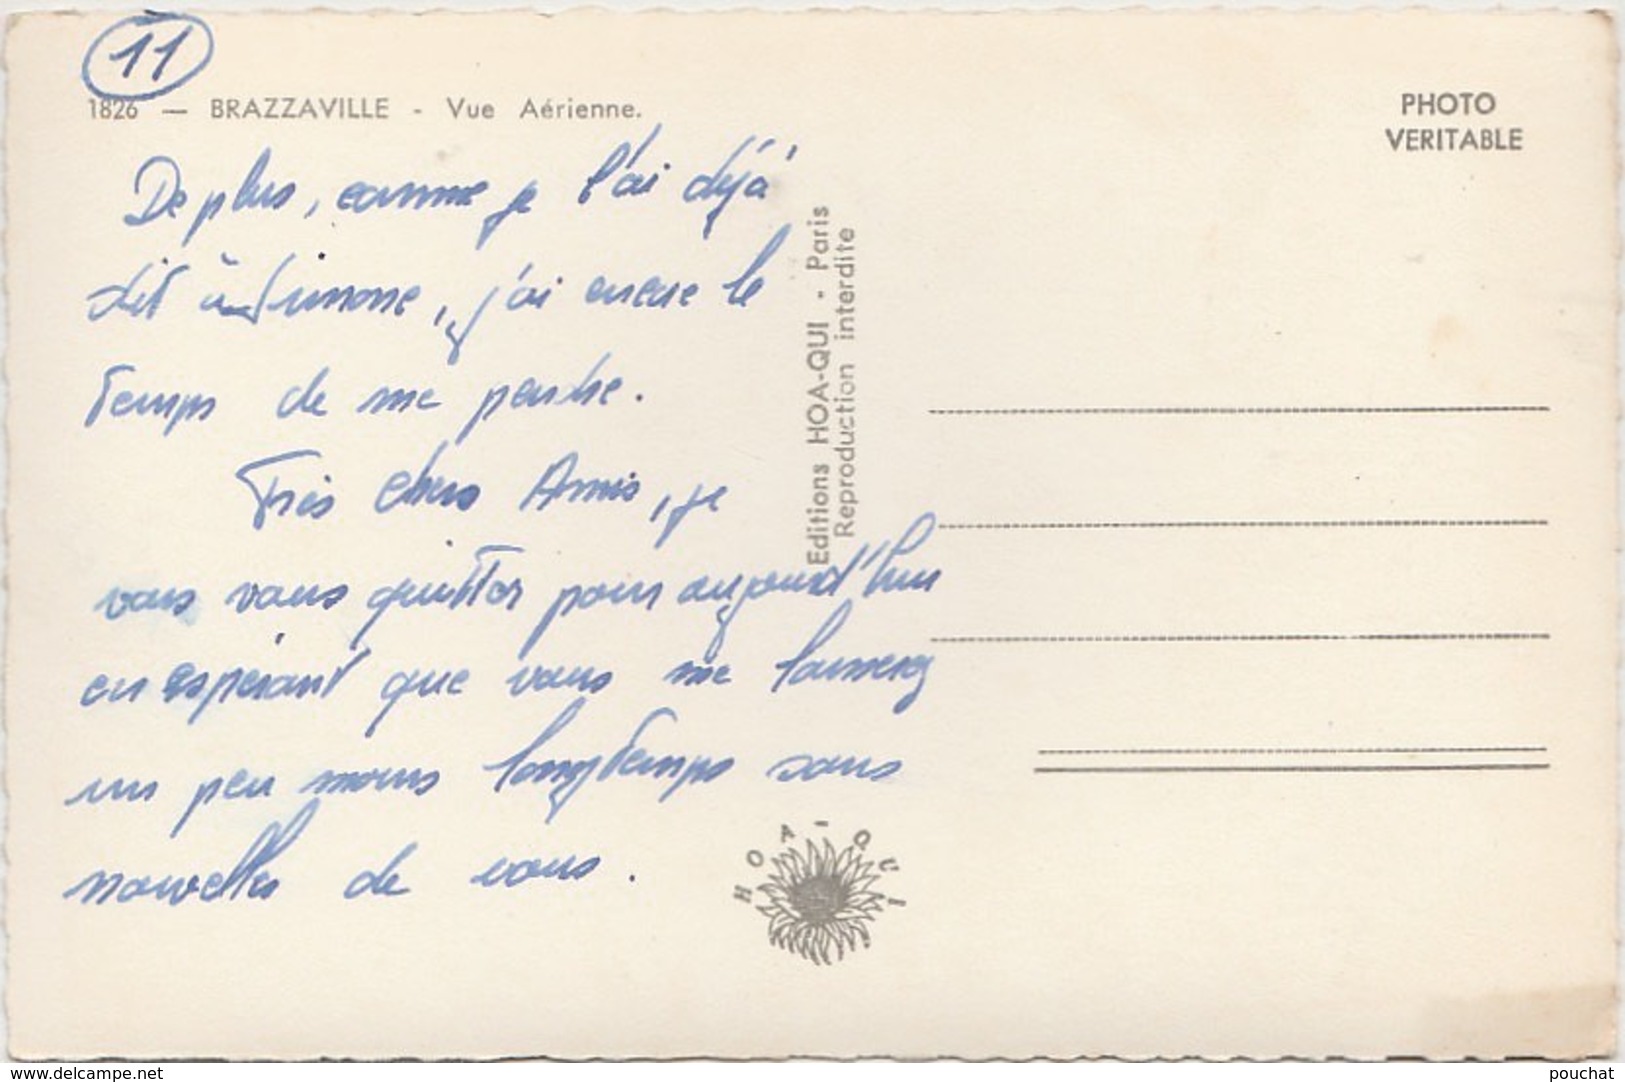 11
1826 — BRAZZAVILLE - Vue Aérienne.
PHOTO
VERITABLE
De plus, comme je l'ai déjà
dit à Simone, j'ai encore le
temps de me pendre.
Très chers Amis, je
vais vous quitter pour aujourd'hui
en espérant que vous me laisserez
un peu moins longtemps sans
nouvelles de vous.
Editions HOA-QUI - Paris
Reproduction interdite
HOA QUI
www.delcampe.net
pouchat